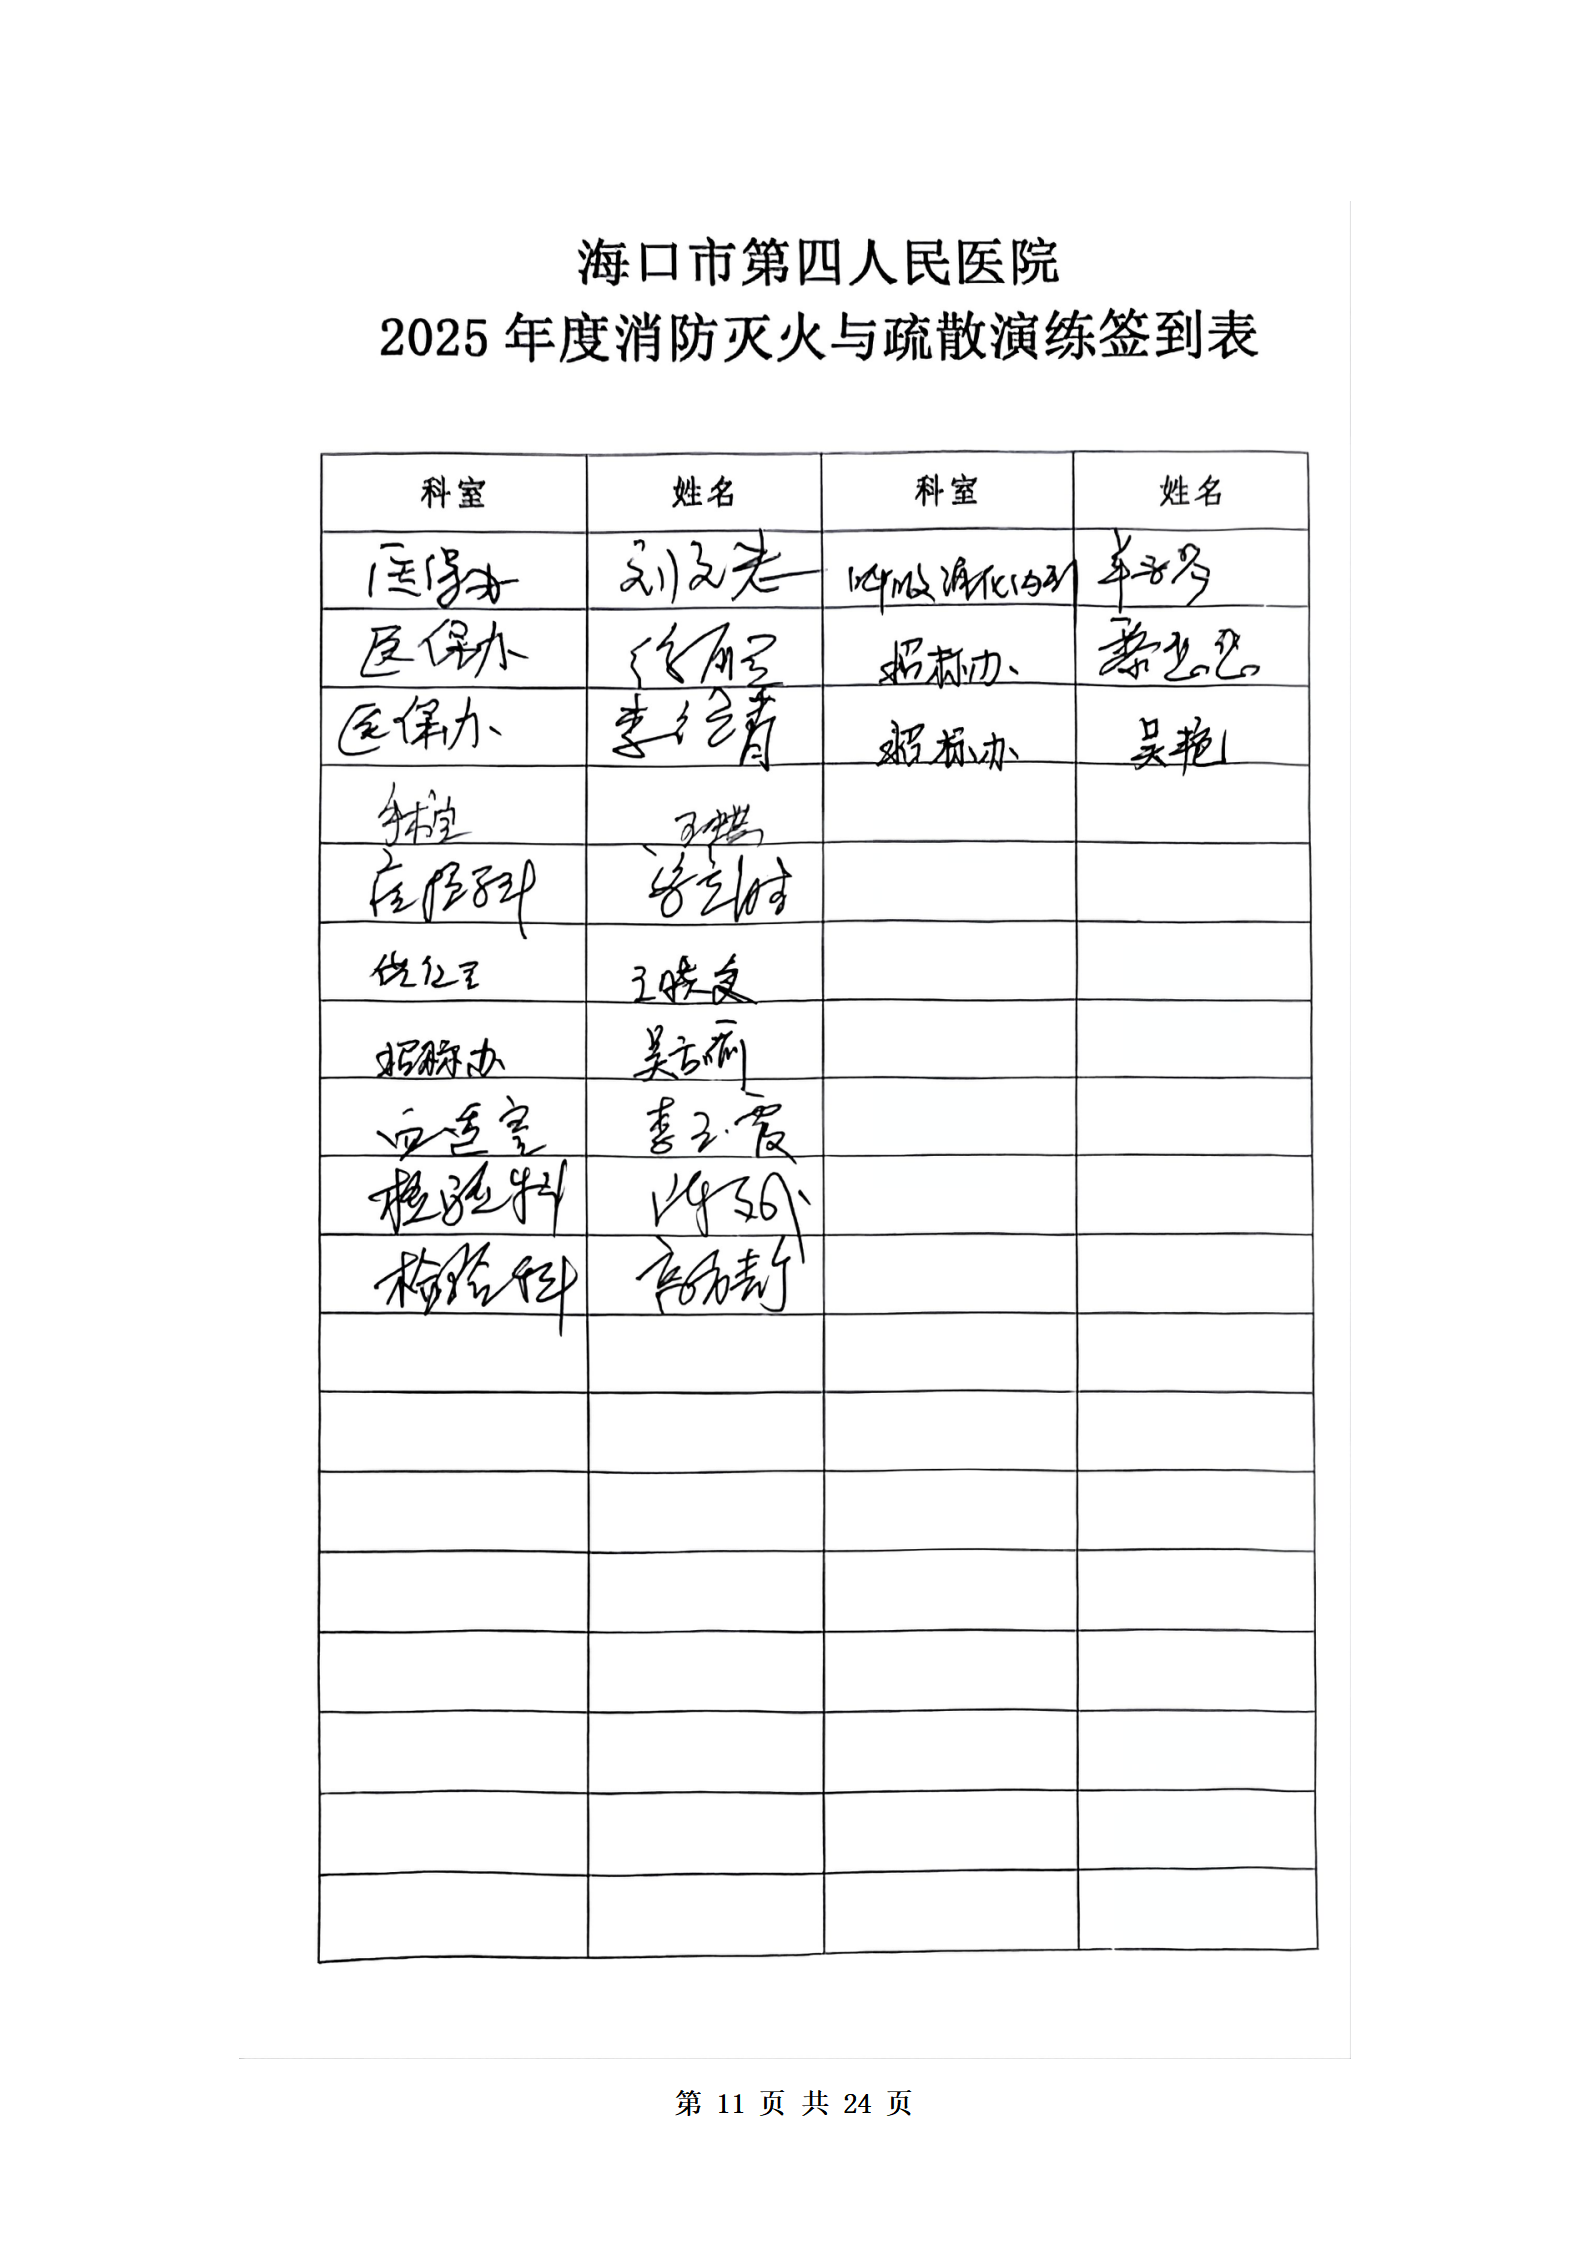 海口市第四人民医院
2025年度消防灭火与疏散演练签到表
科室 姓名 科室 姓名
医保办 刘文 呼吸消化内科
医保办 徐丽 招标办 蔡
医保办 李经青 招标办 吴艳
手术室 王
医院科
供应室 王晓文
招标办 吴
血透室 李玉霞
检验科 许
检验科 高方青
第 11 页 共 24 页